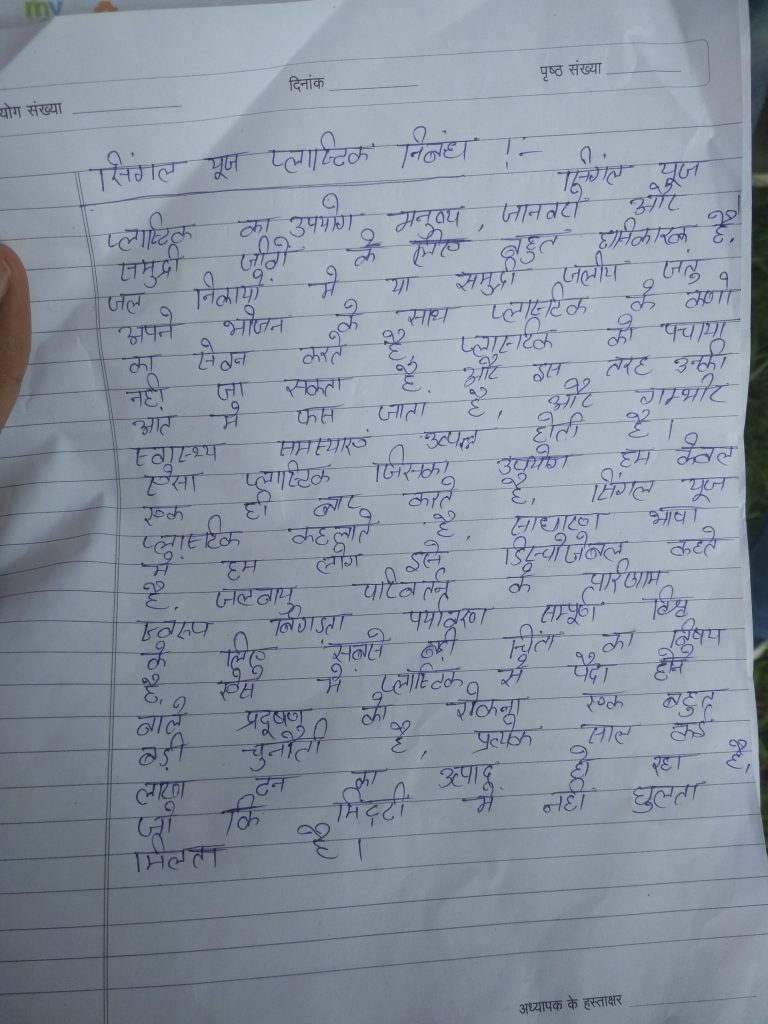 my
योग संख्या
दिनांक
पृष्ठ संख्या
सिंगल यूज प्लास्टिक निबंध !-
सिंगल यूज
प्लास्टिक का उपयोग मनुष्य, जानवरो और
समुद्री जीवो के लिए बहुत हानिकारक है,
जल निकायो मे या समुद्री जलीय जंतु
अपने भोजन के साथ प्लास्टिक के कणो
का सेवन करते है, प्लास्टिक को पचाया
नही जा सकता है, और इस तरह उनकी
आंत मे फस जाता है, और गम्भीर
स्वास्थ्य समस्याएं उत्पन्न होती है ।
ऐसा प्लास्टिक जिसका उपयोग हम केवल
एक ही बार करते है, सिंगल यूज
प्लास्टिक कहलाते है, साधारण भाषा
मे हम लोग इसे डिस्पोजेबल कहते
है, जलवायु परिवर्तन के परिणाम
स्वरुप बिगडता पर्यावरण सम्पूर्ण विश्व
के लिए सबसे बड़ी चिंता का विषय
है, ऐसे मे प्लास्टिक से पैदा होने
वाले प्रदूषण को रोकना एक बहुत
बड़ी चुनौती है, प्रत्येक साल कई
लाख टन का उत्पाद हो रहा है,
जो कि मिट्टी में नही घुलता
मिलता है ।
अध्यापक के हस्ताक्षर